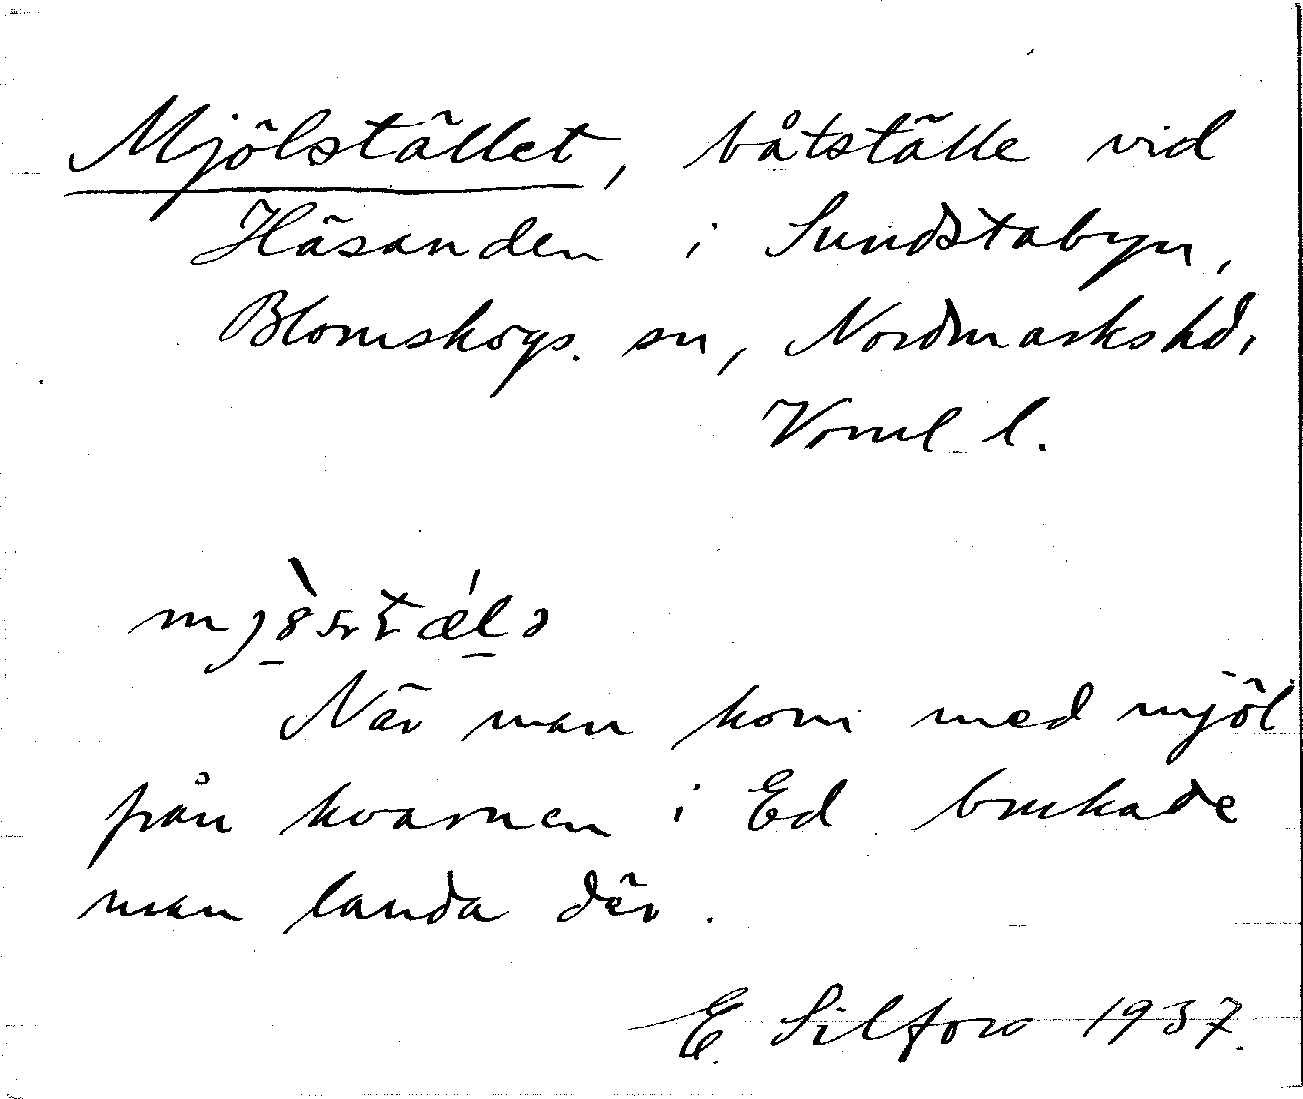 Mjölstället, båtställe vid
Häsanden i Sundstabyn,
Blomskogs sn, Nordmarks hd,
Värml l.
När man kom med mjöl
från kvarnen i Ed brukade
man landa där.
E. Silfors 1937.